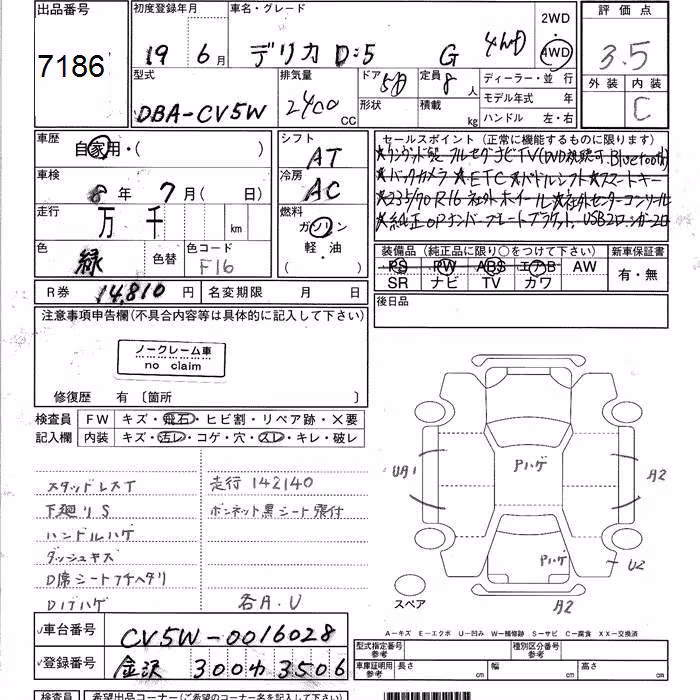 出品番号 初度登録年月 車名・グレード 2WD 評価点
7186 19年6月 デリカD:5 G 4WD 4WD 3.5
外装 内装
C
型式 排気量 ドア 定員 ディーラー・並行
DBA-CV5W 2400CC 5D 8人 モデル年式 年
形状 積載 kg ハンドル 左・右
車歴 シフト セールスポイント(正常に機能するものに限ります)
自家用・( ) AT
車検 冷房
8年7月( 日) AC
★バックカメラ ★ETC ★パドルシフト ★スマートキー
★235/70R16社外ホイール ★社外センターコンソール
★純正OPナンバープレートブラケット、USB2口、シガー2口
走行 万 千 km 燃料
ガソリン
軽・油
( )
色 色替 色コード
緑 F16
装備品(純正品に限り○をつけて下さい) 新車保証書
PS PW ABS エアB AW 有・無
SR ナビ TV カワ
R券 14,810円 名変期限 月 日
後日品
注意事項申告欄(不具合内容等は具体的に記入して下さい)
ノークレーム車
no claim
修復歴 有〔箇所 〕
検査員 FW キズ・飛石・ヒビ割・リペア跡・×要
記入欄 内装 キズ・汚レ・コゲ・穴・スレ・キレ・破レ
スタッドレスT 走行142140
下廻りS ボンネット黒シート張付
ハンドルハゲ
ダッシュキズ
D席シートフチヘタリ
D1フハゲ 各A.U
Pハゲ
UA1
A2
Pハゲ
U2
A2
スペア
A-キズ E-エクボ U-凹み W-補修跡 S-サビ C-腐食 XX-交換済
√車台番号 CV5W-0016028
√登録番号 金沢 300わ3506
型式指定番号 参考 種別区分番号 参考
車庫証明用 参考 長さ cm 幅 cm 高さ cm
検査員 希望出品コーナー(ご希望のコーナー名を記入して下さい)